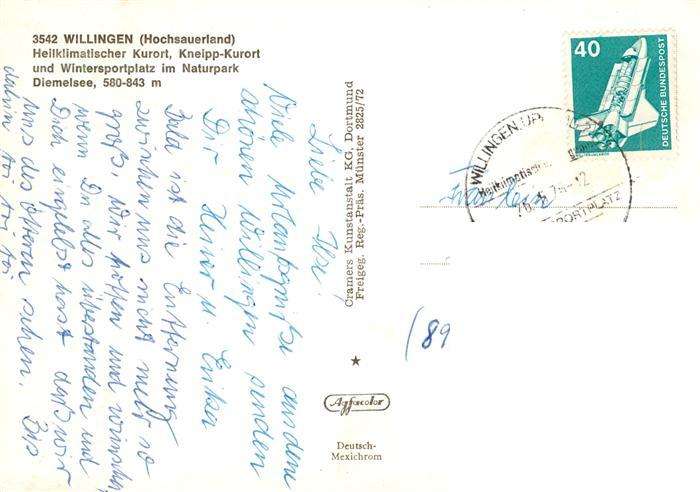 3542 WILLINGEN (Hochsauerland)
Heilklimatischer Kurort, Kneipp-Kurort
und Wintersportplatz im Naturpark
Diemelsee, 580-843 m
Viele Urlaubsgrüße aus dem
schönen Willingen senden
Dir Heiner u. Erika
Bald ist die Entfernung
zwischen uns nicht mehr so
groß. Wir hoffen und wünschen
wenn Du alles überstanden und
Dich eingelebt hast daß wir
uns des öfteren sehen. Bis
dahin toi toi toi
Cramers Kunstanstalt KG, Dortmund
Freigeg. Reg.-Präs. Münster 2825/72
★
Agfacolor
Deutsch-
Mexichrom
40
DEUTSCHE BUNDESPOST
WILLINGEN
Heilklimatischer
12
SPORTPLATZ
Liebe
Frau
/89